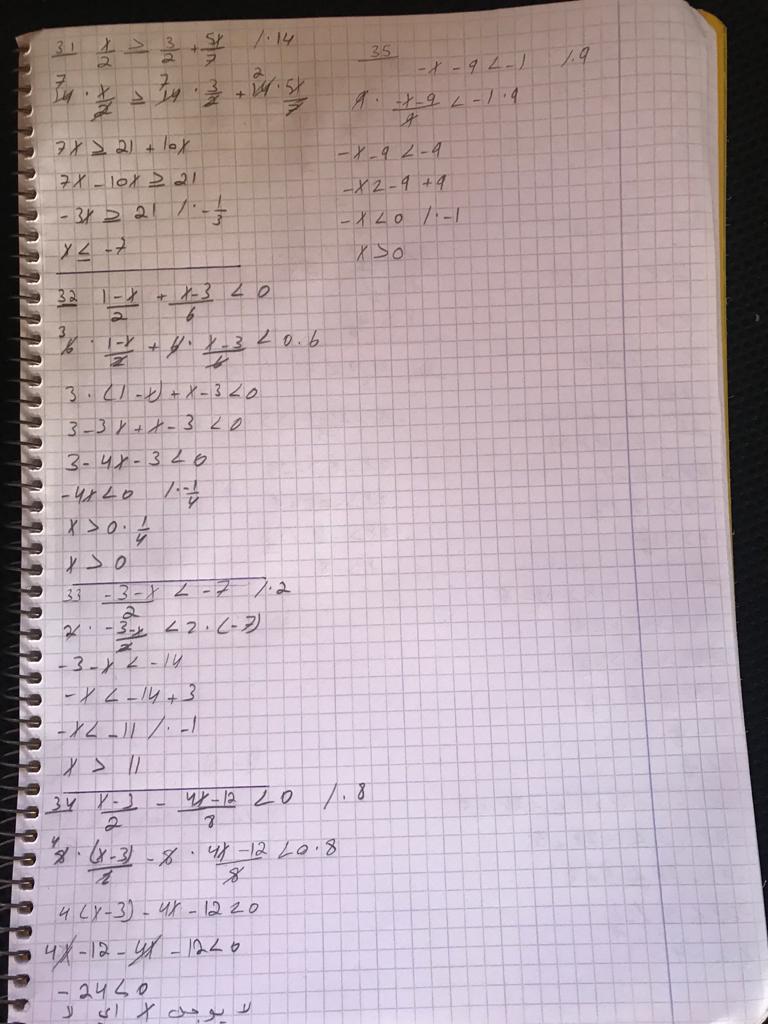 31 x/2 ≥ 3/2 + 5x/7 /·14
14 · x/2 ≥ 14 · 3/2 + 14 · 5x/7
7x ≥ 21 + 10x
7x - 10x ≥ 21
-3x ≥ 21 /· -1/3
x ≤ -7
32 (1-x)/2 + (x-3)/6 < 0
6 · (1-x)/2 + 6 · (x-3)/6 < 0.6
3 · (1-x) + x-3 < 0
3 - 3x + x - 3 < 0
3 - 4x - 3 < 0
-4x < 0 /· -1/4
x > 0 · 1/4
x > 0
33 (-3-x)/2 < -7 /·2
2 · (-3-x)/2 < 2 · (-7)
-3 - x < -14
-x < -14 + 3
-x < -11 /· -1
x > 11
34 (x-3)/2 - (4x-12)/8 < 0 /·8
8 · (x-3)/2 - 8 · (4x-12)/8 < 0·8
4(x-3) - 4x - 12 < 0
4x - 12 - 4x - 12 < 0
-24 < 0
لا يوجد x
35
-x - 9 < -1 /·9
9 · (-x-9)/9 < -1·9
-x - 9 < -9
-x < -9 + 9
-x < 0 /· -1
x > 0